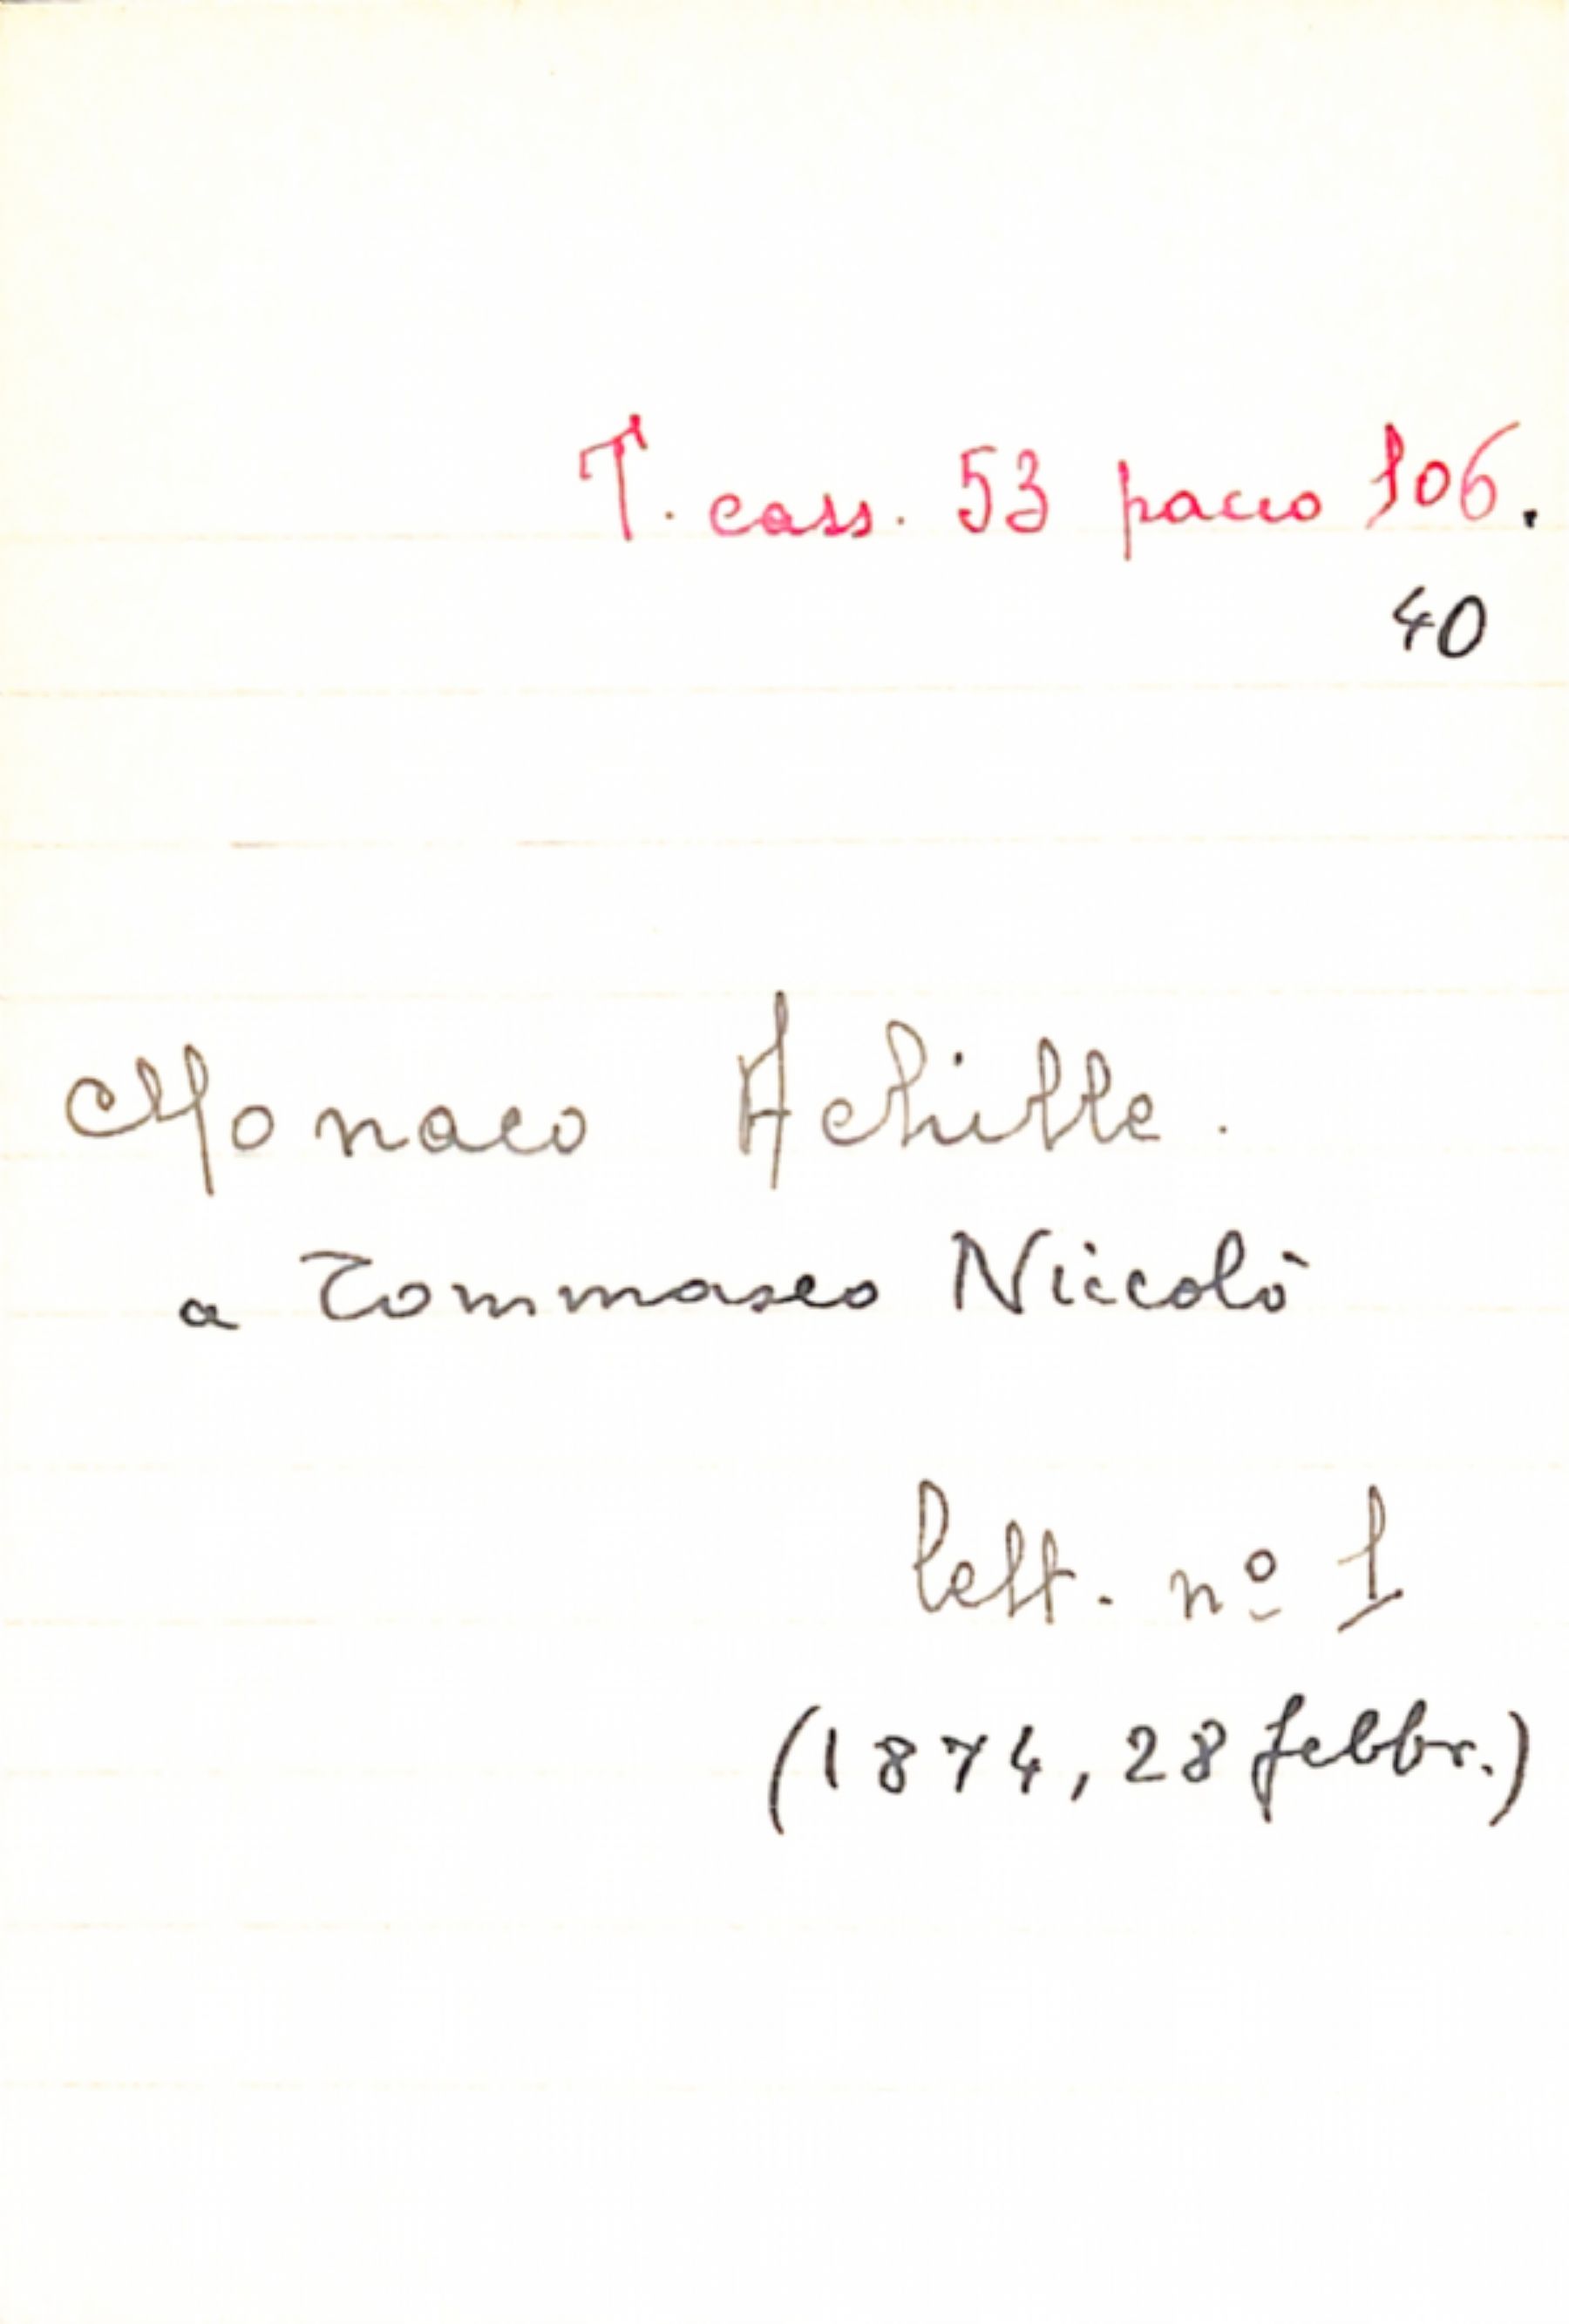 T. cass. 53 pacco 106.
40
Monaco Achille.
a Tommaseo Niccolò
lett. nº 1
(1874, 28 febbr.)